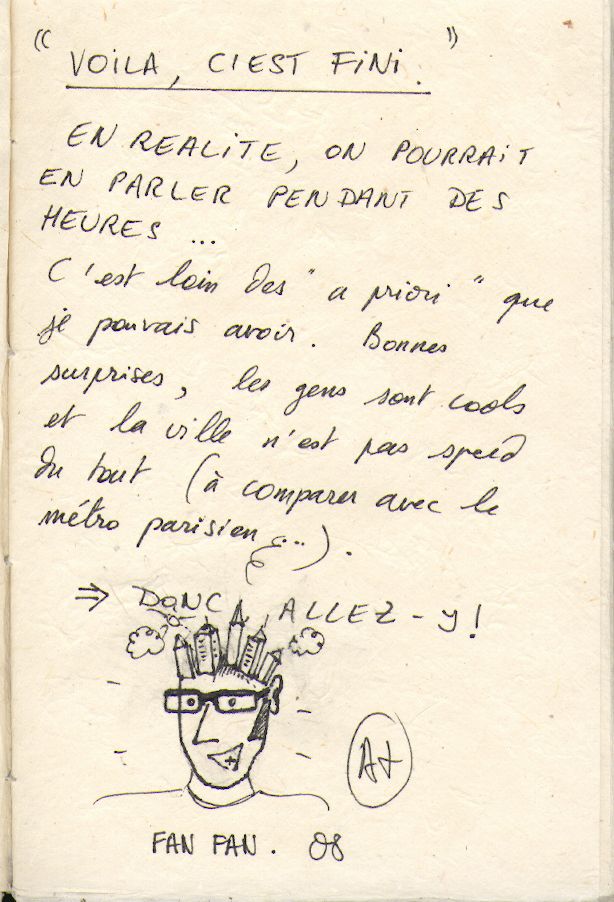 "VOILA, C'EST FINI."
EN REALITE, ON POURRAIT
EN PARLER PENDANT DES
HEURES ...
C'est loin des "a priori" que
je pouvais avoir. Bonnes
surprises, les gens sont cools
et la ville n'est pas speed
du tout (à comparer avec le
métro parisien ...).
⇒ DONC ALLEZ-Y!
A+
FAN FAN. 08